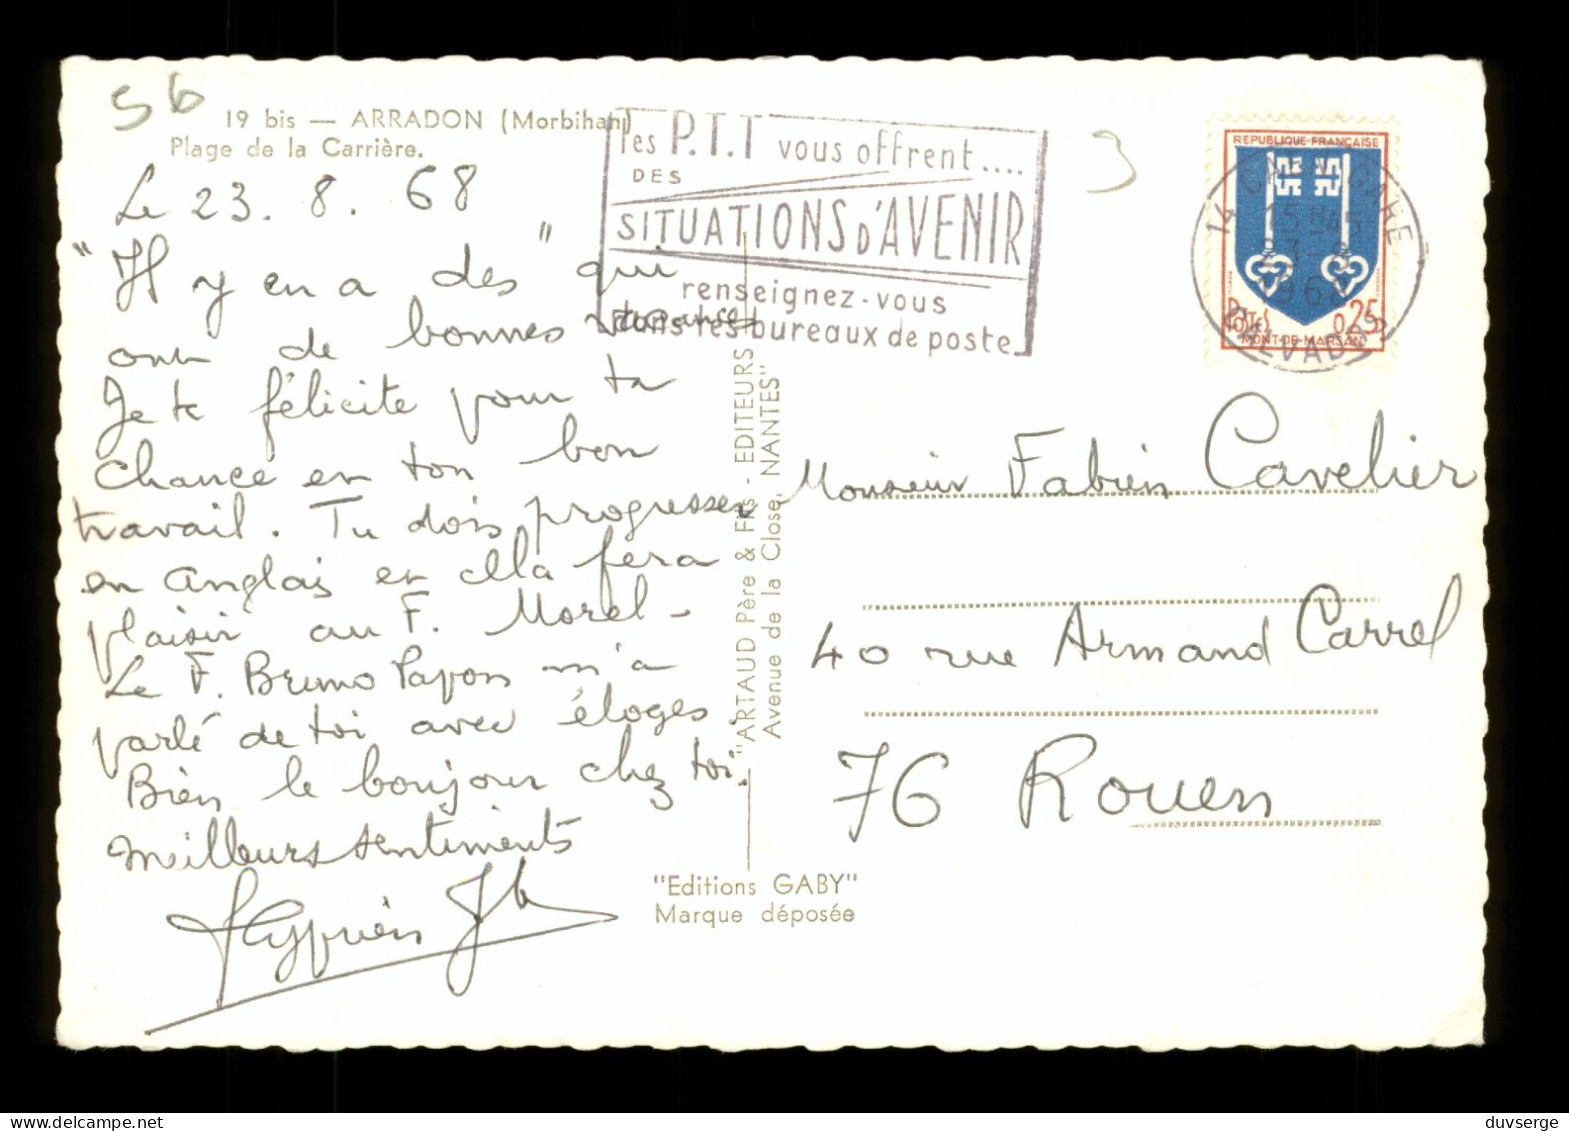 56
19 bis — ARRADON (Morbihan)
Plage de la Carrière.
Le 23. 8. 68
"Il y en a des" qui
ont de bonnes vacances
Je te félicite pour ta
chance en ton bon
travail. Tu dois progresser
en anglais et cela fera
plaisir au F. Morel -
Le F. Bruno Papon m'a
parlé de toi avec éloges.
Bien le bonjour chez toi.
Meilleurs sentiments
les P.T.T vous offrent....
DES
SITUATIONS D'AVENIR
renseignez-vous
dans les bureaux de poste
3
REPUBLIQUE FRANÇAISE
POSTES 0,25
MONT-DE-MARSAN
14 CAEN GARE
15H45
23-8
1968
CALVADOS
"ARTAUD Père & Fils - EDITEURS
Avenue de la Close, NANTES"
Monsieur Fabien Cavelier
40 rue Armand Carrel
76 Rouen
"Editions GABY"
Marque déposée
duvserge